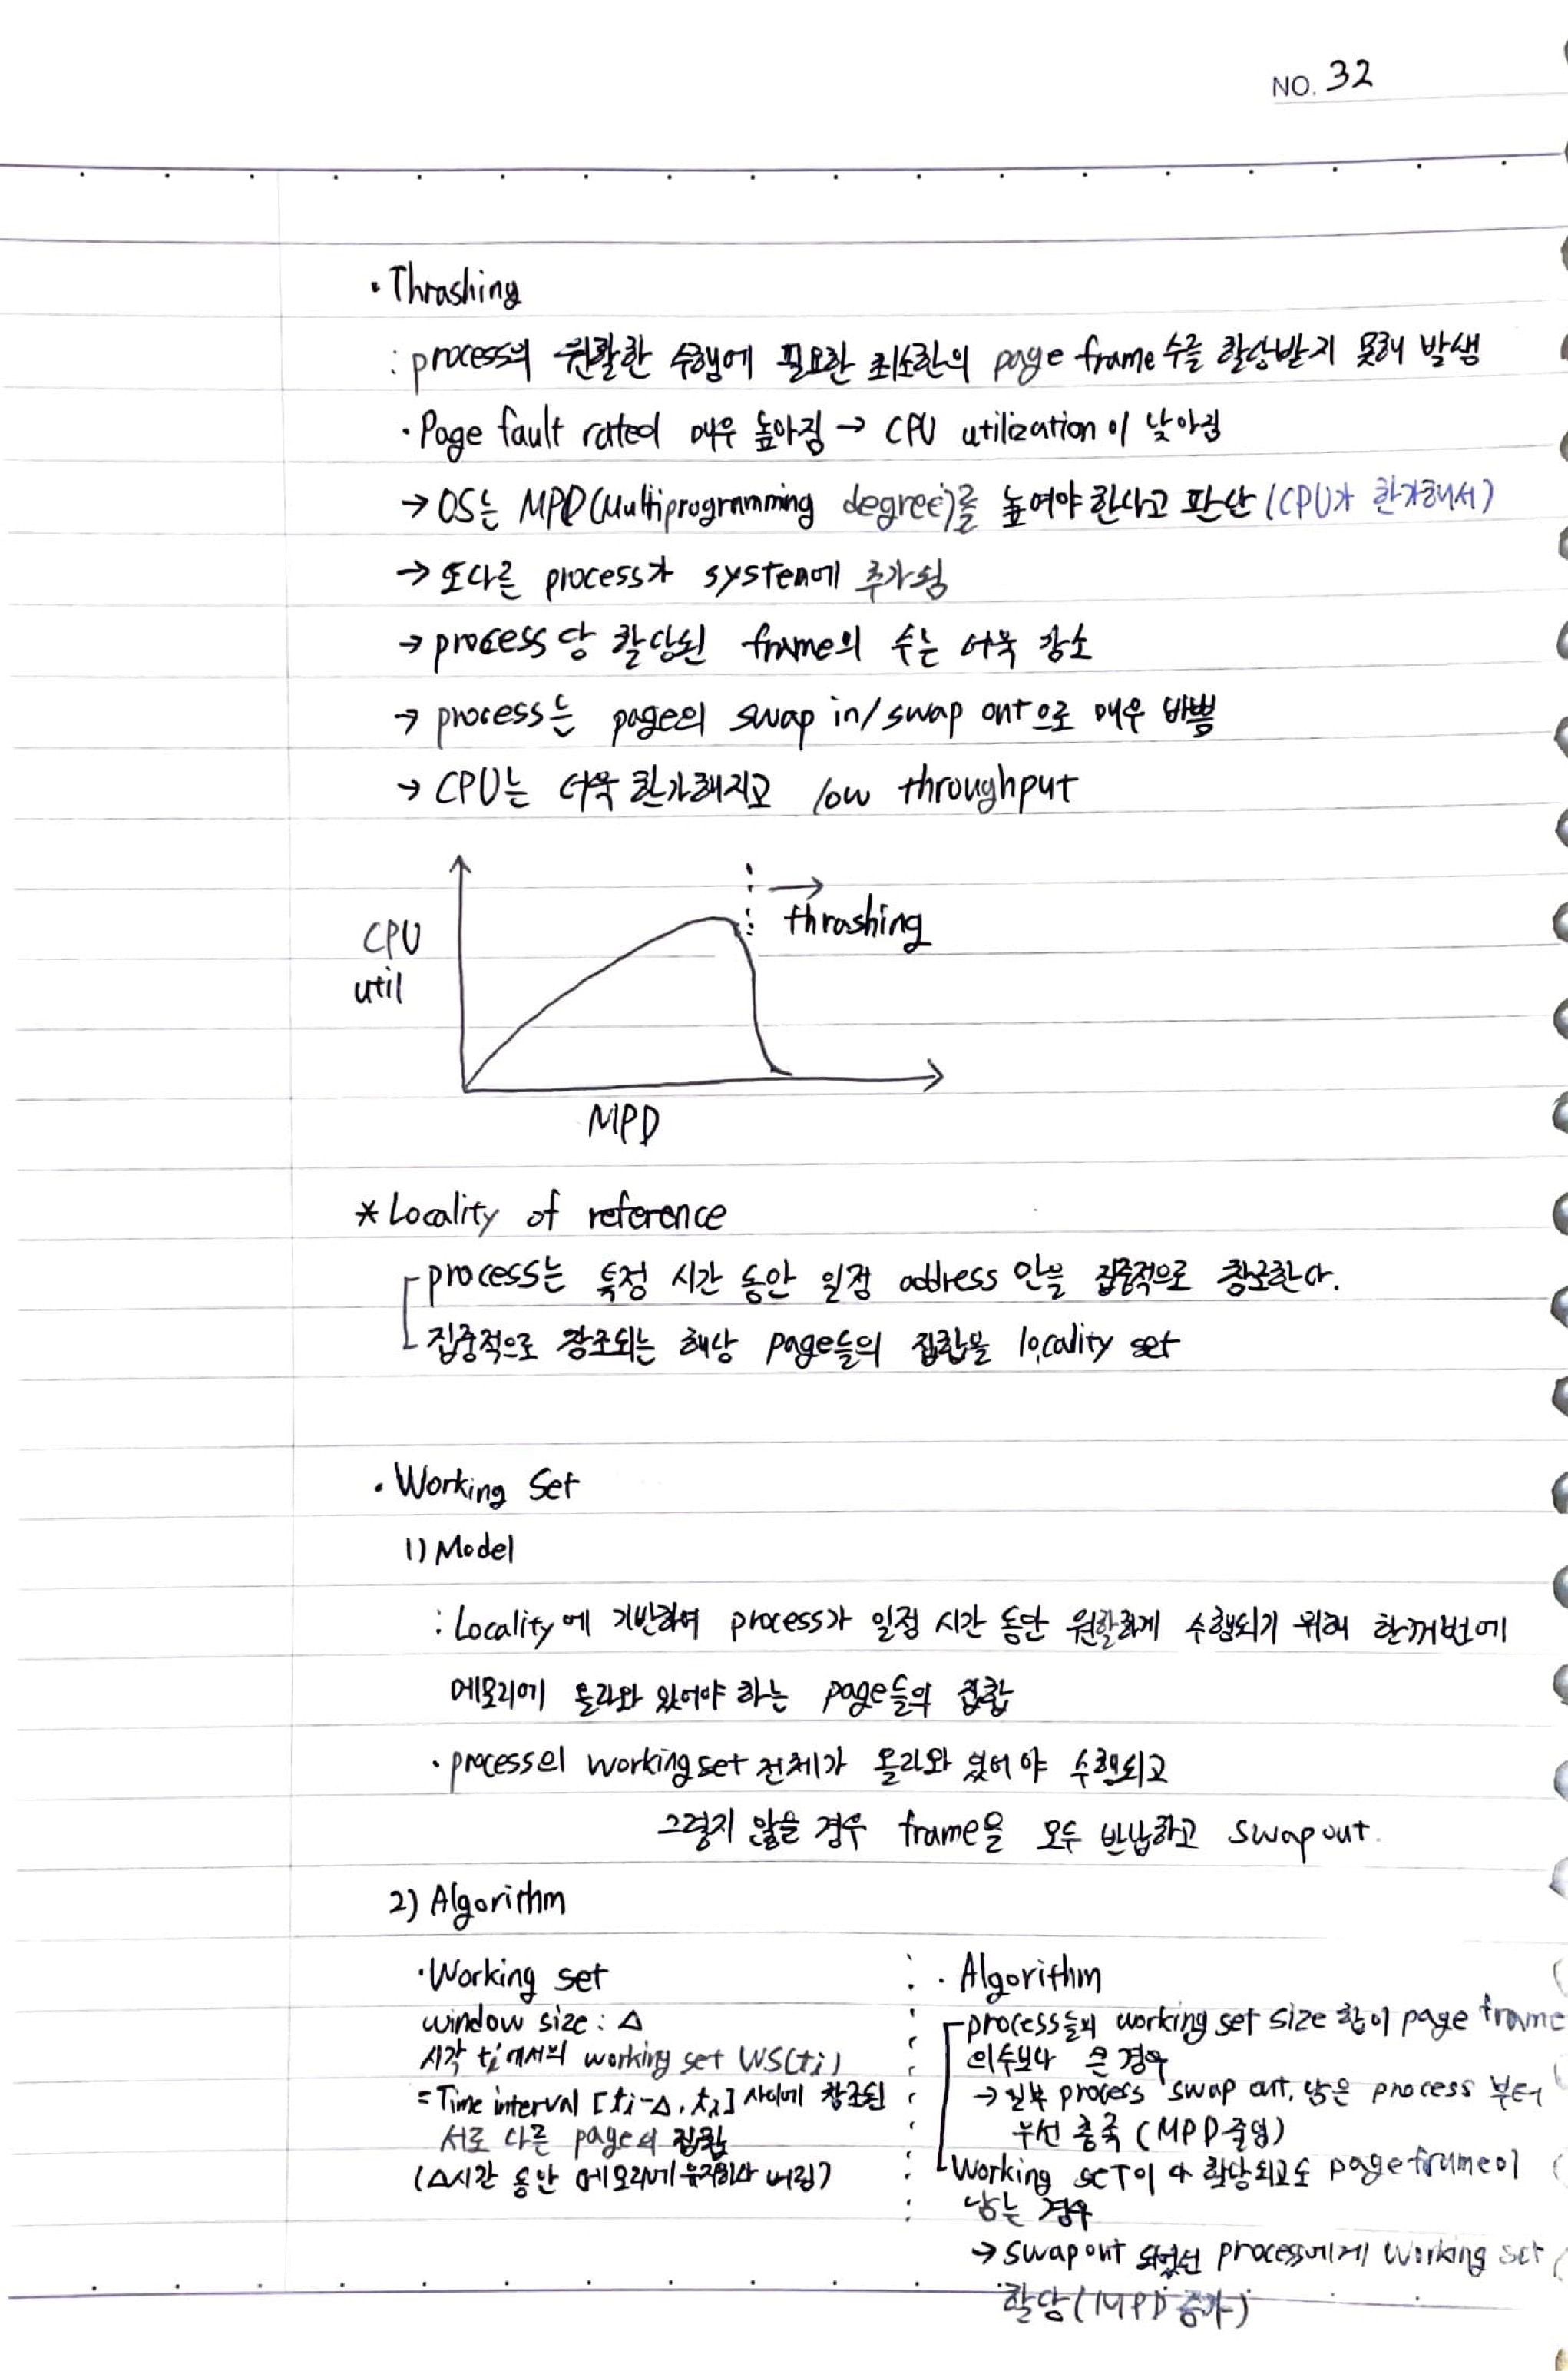 NO. 32
· Thrashing
: process의 원활한 수행에 필요한 최소한의 page frame 수를 할당받지 못해 발생
· Page fault rate이 매우 높아짐 → CPU utilization이 낮아짐
→ OS는 MPD(Multiprogramming degree)를 높여야 한다고 판단 (CPU가 한가해서)
→ 또다른 process가 system에 추가됨
→ process당 할당된 frame의 수는 더욱 감소
→ process는 page의 swap in/swap out으로 매우 바쁨
→ CPU는 더욱 한가해지고 low throughput
→ thrashing
CPU
util
MPD
* Locality of reference
process는 특정 시간 동안 일정 address 안을 집중적으로 참조한다.
집중적으로 참조되는 해당 page들의 집합을 locality set
· Working Set
1) Model
: Locality에 기반하여 process가 일정 시간 동안 원활하게 수행되기 위해 한꺼번에
메모리에 올라와 있어야 하는 page들의 집합
· process의 working set 전체가 올라와 있어야 수행되고
그렇지 않을 경우 frame을 모두 반납하고 swap out.
2) Algorithm
· Working set
window size : Δ
시각 ti에서의 working set WS(ti)
= Time interval [ti-Δ, ti] 사이에 참조된
서로 다른 page의 집합
(Δ시간 동안 메모리에 유지하다 버림)
· Algorithm
process들의 working set size 합이 page frame
의 수보다 큰 경우
→ 일부 process swap out, 남은 process 부터
우선 충족 (MPD 줄임)
Working set이 다 할당되고도 page frame이
남는 경우
→ swap out 되었던 process에게 working set
할당 (MPD 증가)